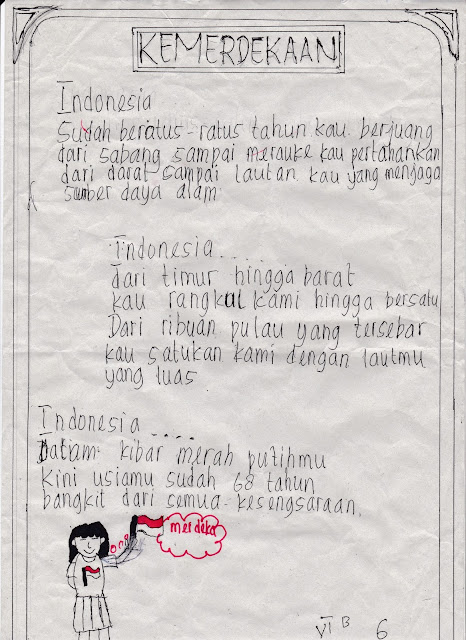 KEMERDEKAAN
Indonesia
Sudah beratus-ratus tahun kau berjuang
dari sabang sampai merauke kau pertahankan
dari darat sampai lautan kau yang menjaga
sumber daya alam
Indonesia.....
dari timur hingga barat
kau rangkul kami hingga bersatu
Dari ribuan pulau yang tersebar
kau satukan kami dengan lautmu
yang luas
Indonesia ....
Dalam kibar merah putihmu
kini usiamu sudah 68 tahun
bangkit dari semua kesengsaraan.
merdeka
VI B 6